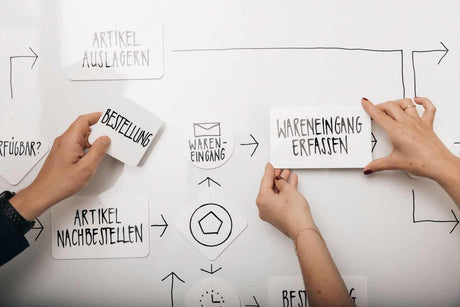 ARTIKEL
AUSLAGERN
BESTELLUNG
RFÜGBAR?
WAREN-
EINGANG
WARENEINGANG
ERFASSEN
ARTIKEL
NACHBESTELLEN
BES